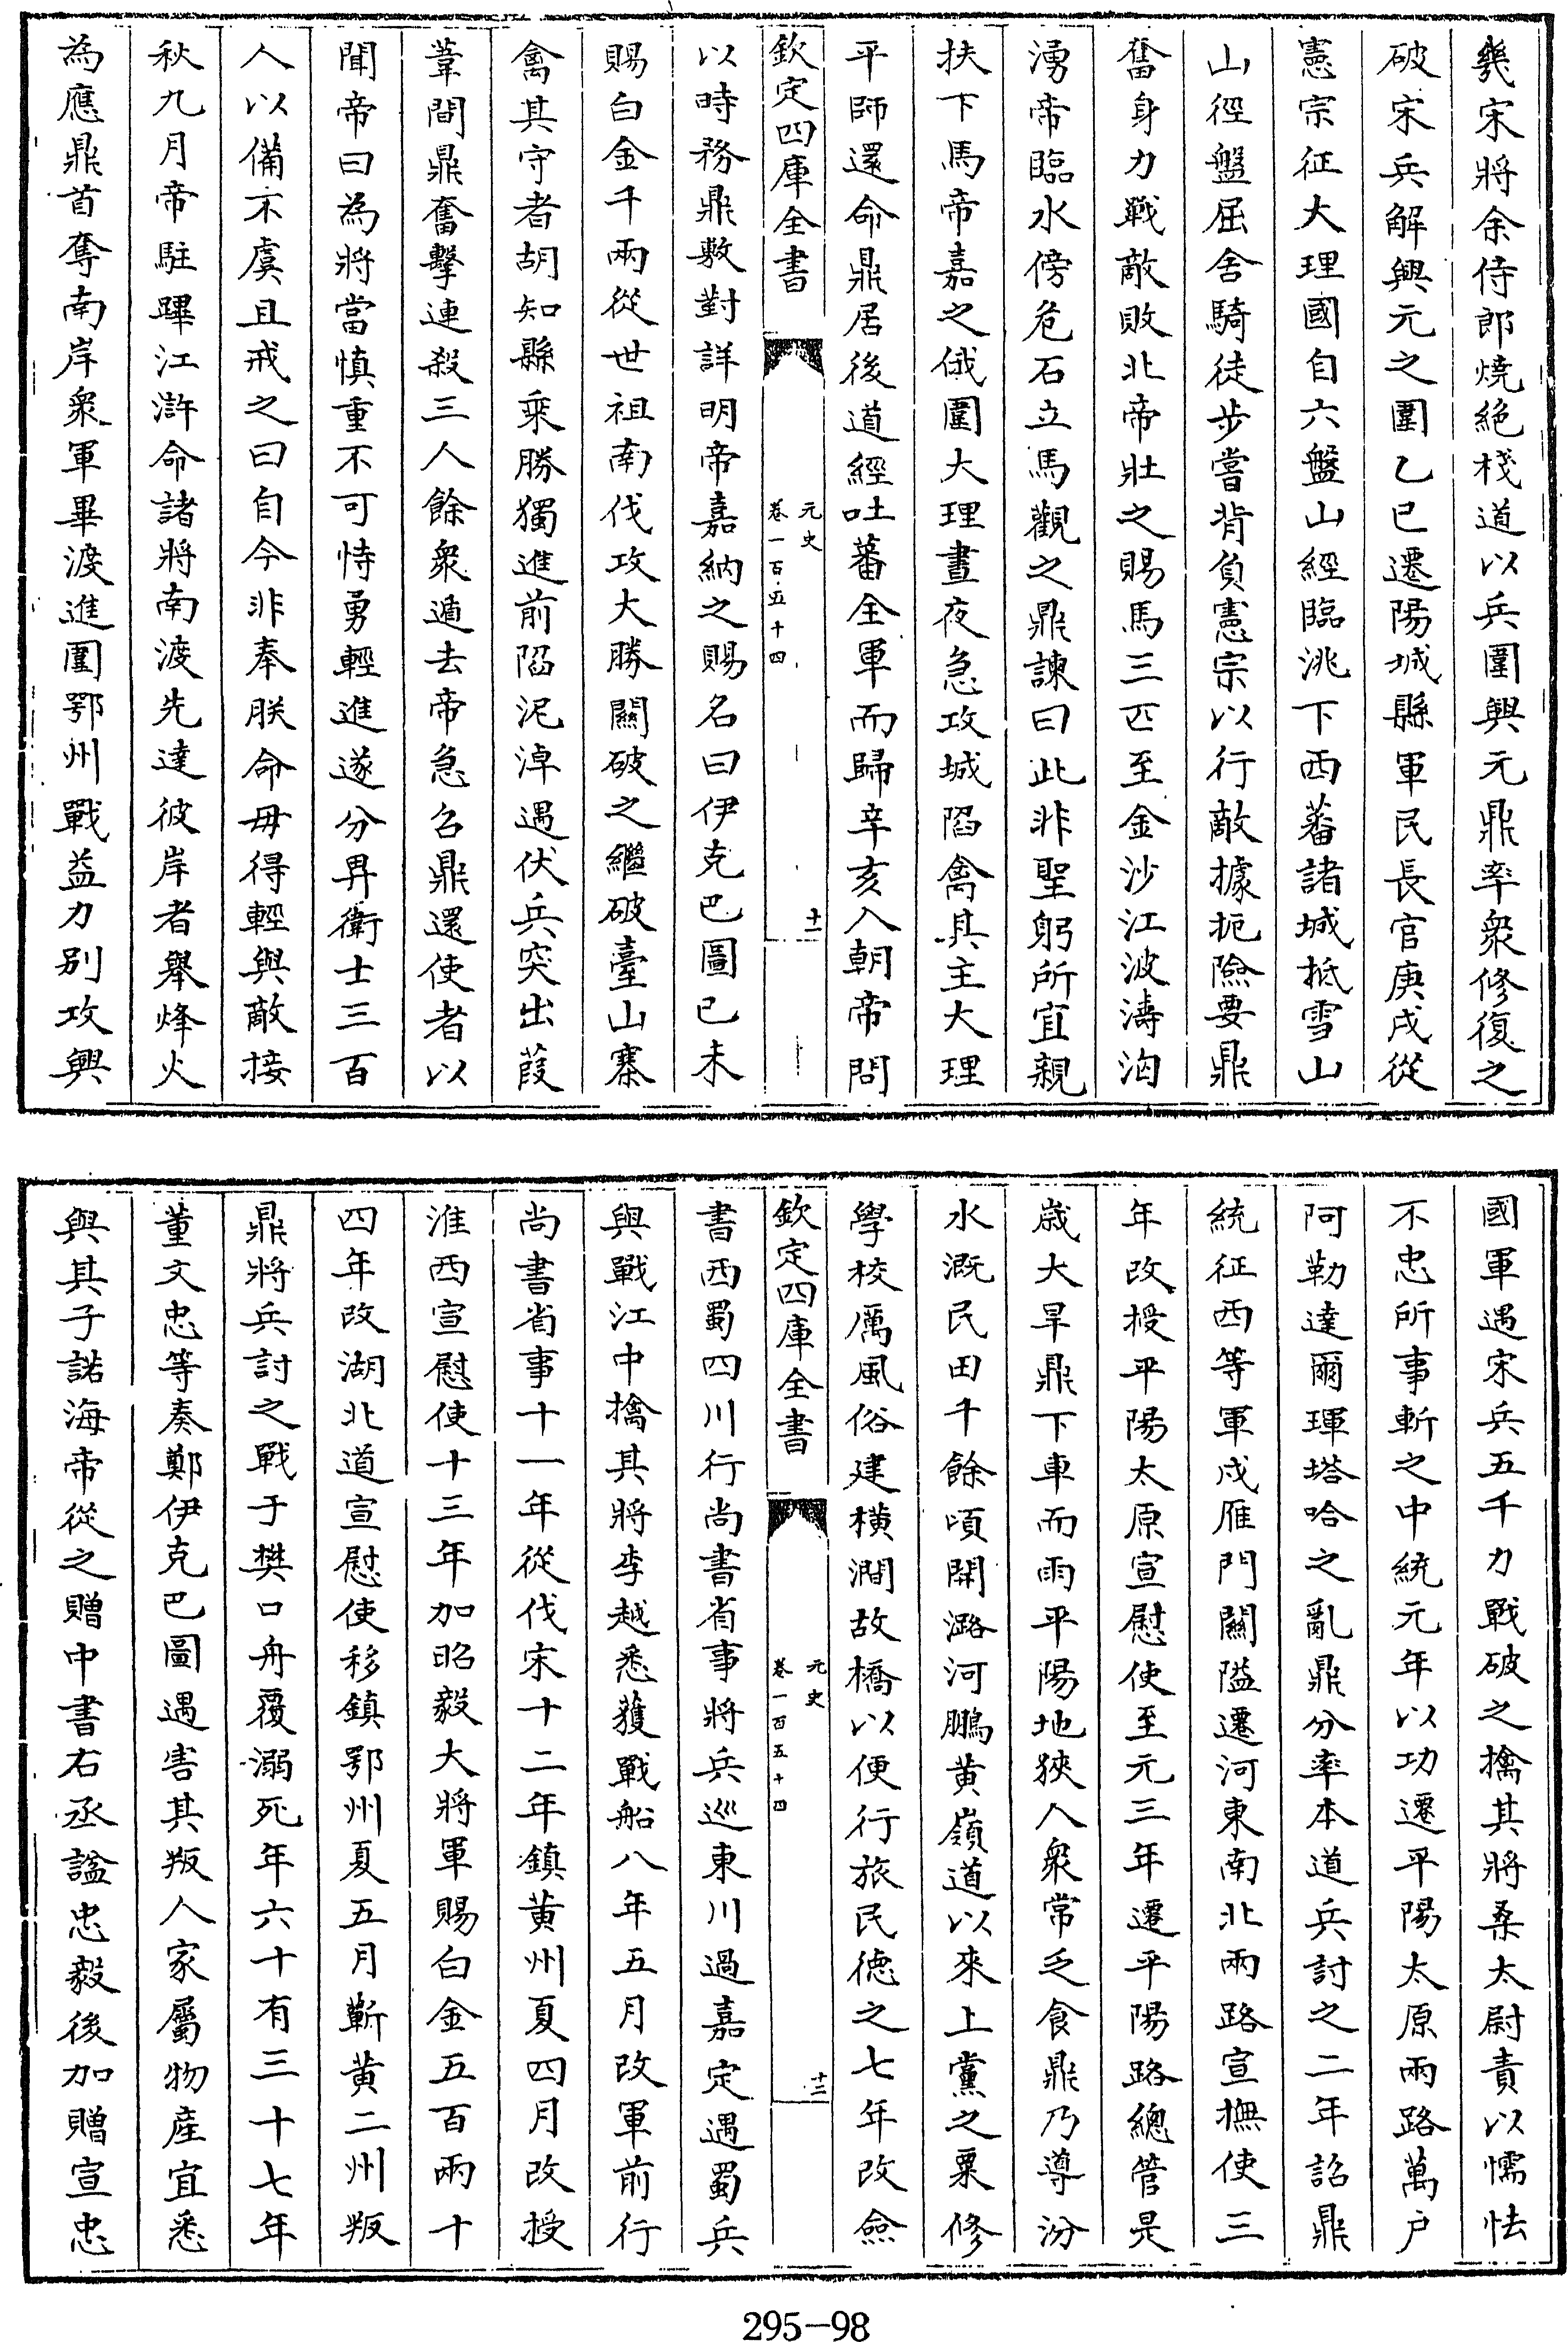 幾宋將余侍郎燒絕棧道以兵圍興元鼎率衆修復之
破宋兵解興元之圍乙巳遷陽城縣軍民長官庚戌從
憲宗征大理國自六盤山經臨洮下西蕃諸城抵雪山
山徑盤屈舍騎徒步嘗背負憲宗以行敵據扼險要鼎
奮身力戰敵敗北帝壯之賜馬三匹至金沙江波濤洶
湧帝臨水傍危石立馬觀之鼎諫曰此非聖躬所宜親
扶下馬帝嘉之俄圍大理晝夜急攻城陷禽其主大理
平師還命鼎居後道經吐蕃全軍而歸辛亥入朝帝問
欽定四庫全書
元史
卷一百五十四
十一
以時務鼎敷對詳明帝嘉納之賜名曰伊克巴圖已未
賜白金千兩從世祖南伐攻大勝關破之繼破臺山寨
禽其守者胡知縣乘勝獨進前陷泥淖遇伏兵突出葭
葦間鼎奮擊連殺三人餘衆遁去帝急召鼎還使者以
聞帝曰為將當慎重不可恃勇輕進遂分畀衛士三百
人以備不虞且戒之曰自今非奉朕命毋得輕與敵接
秋九月帝駐蹕江滸命諸將南渡先達彼岸者舉烽火
為應鼎首奪南岸衆軍畢渡進圍鄂州戰益力别攻興
國軍遇宋兵五千力戰破之擒其將桑太尉責以懦怯
不忠所事斬之中統元年以功遷平陽太原兩路萬户
阿勒達爾琿塔哈之亂鼎分率本道兵討之二年詔鼎
統征西等軍戍雁門關隘遷河東南北兩路宣撫使三
年改授平陽太原宣慰使至元三年遷平陽路總管是
歲大旱鼎下車而雨平陽地狹人衆常乏食鼎乃導汾
水溉民田千餘頃開潞河鵬黄嶺道以來上黨之粟修
學校厲風俗建横澗故橋以便行旅民德之七年改僉
欽定四庫全書
元史
卷一百五十四
十二
書西蜀四川行尚書省事將兵巡東川過嘉定遇蜀兵
與戰江中擒其將李越悉獲戰船八年五月改軍前行
尚書省事十一年從伐宋十二年鎮黄州夏四月改授
淮西宣慰使十三年加昭毅大將軍賜白金五百兩十
四年改湖北道宣慰使移鎮鄂州夏五月蘄黄二州叛
鼎將兵討之戰于樊口舟覆溺死年六十有三十七年
董文忠等奏鄭伊克巴圖遇害其叛人家屬物產宜悉
與其子諾海帝從之贈中書右丞諡忠毅後加贈宣忠
295-98